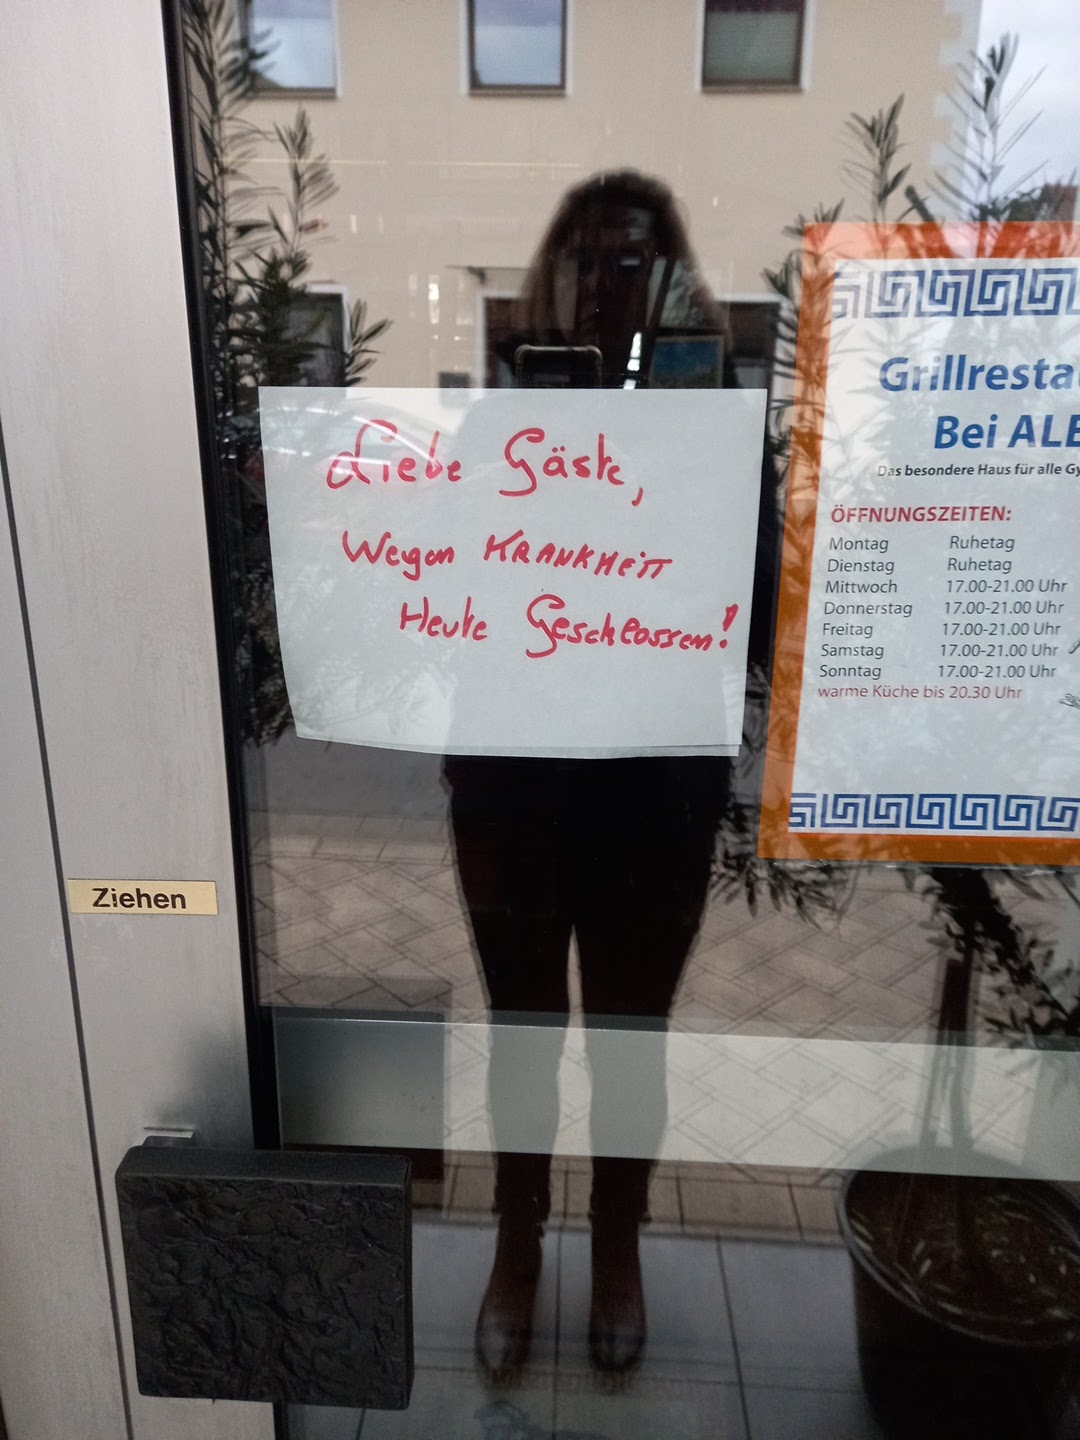 Liebe Gäste,
Wegen KRANKHEIT
Heute Geschlossen!
Grillresta
Bei ALE
Das besondere Haus für alle Gy
ÖFFNUNGSZEITEN:
Montag Ruhetag
Dienstag Ruhetag
Mittwoch 17.00-21.00 Uhr
Donnerstag 17.00-21.00 Uhr
Freitag 17.00-21.00 Uhr
Samstag 17.00-21.00 Uhr
Sonntag 17.00-21.00 Uhr
warme Küche bis 20.30 Uhr
Ziehen